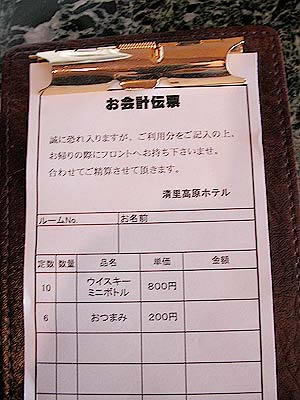 お会計伝票
誠に恐れ入りますが、ご利用分をご記入の上、
お帰りの際にフロントへお持ち下さいませ。
合わせてご精算させて頂きます。
清里高原ホテル
ルームNo. お名前
定数 数量 品名 単価 金額
10 ウイスキー ミニボトル 800円
6 おつまみ 200円